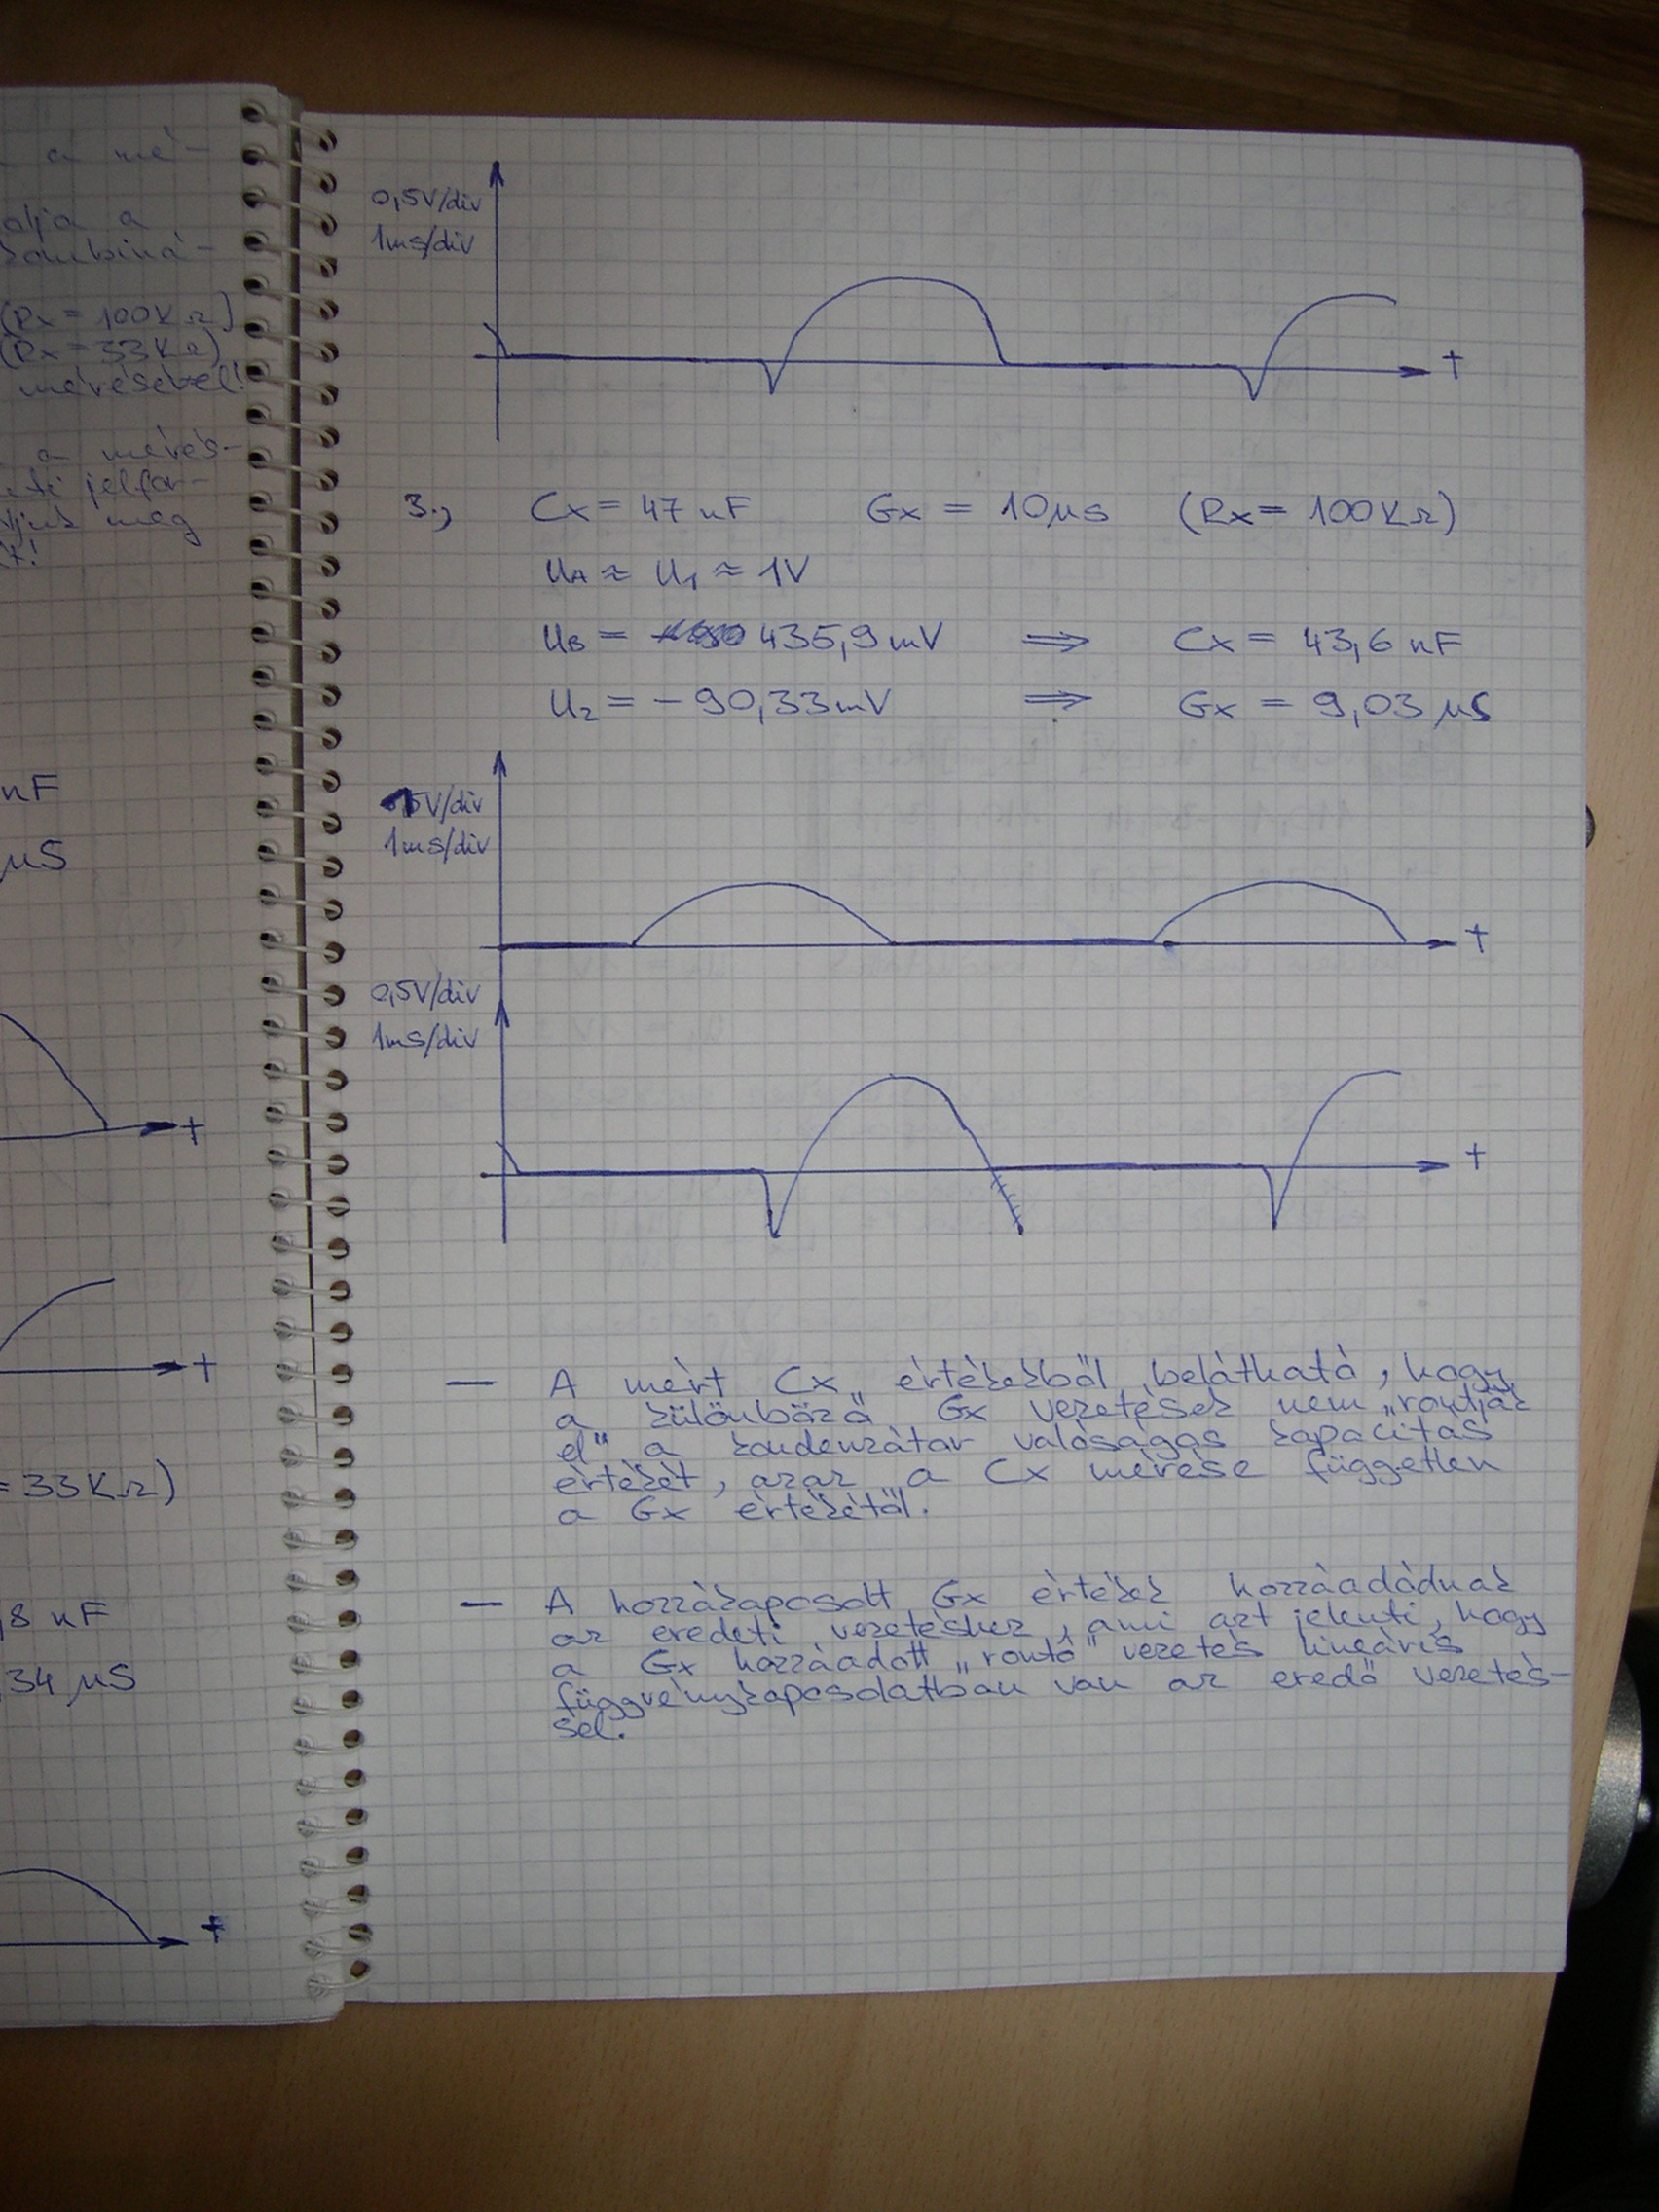 a mé-
alja a
kombiná-
(Rx = 100KΩ)
(Rx = 33KΩ)
mérésével!
a mérés-
jelfor-
meg
nF
μS
t
t
= 33KΩ)
,8 nF
,34 μS
t
0,5V/div
1ms/div
t
3.) Cx = 47 nF Gx = 10μs (Rx = 100KΩ)
UA ≈ U1 ≈ 1V
UB = 435,9 mV ⇒ Cx = 43,6 nF
U2 = -90,33mV ⇒ Gx = 9,03 μS
1V/div
1ms/div
t
0,5V/div
1ms/div
t
— A mért Cx értékekből belátható, hogy
a különböző Gx vezetések nem „rontják
el" a kondenzátor valóságos kapacitás
értékét, azaz a Cx mérése független
a Gx értékétől.
— A hozzákapcsolt Gx értékek hozzáadódnak
az eredeti vezetéshez, ami azt jelenti, hogy
a Gx hozzáadott „rontó" vezetés lineáris
függvénykapcsolatban van az eredő vezetés-
sel.